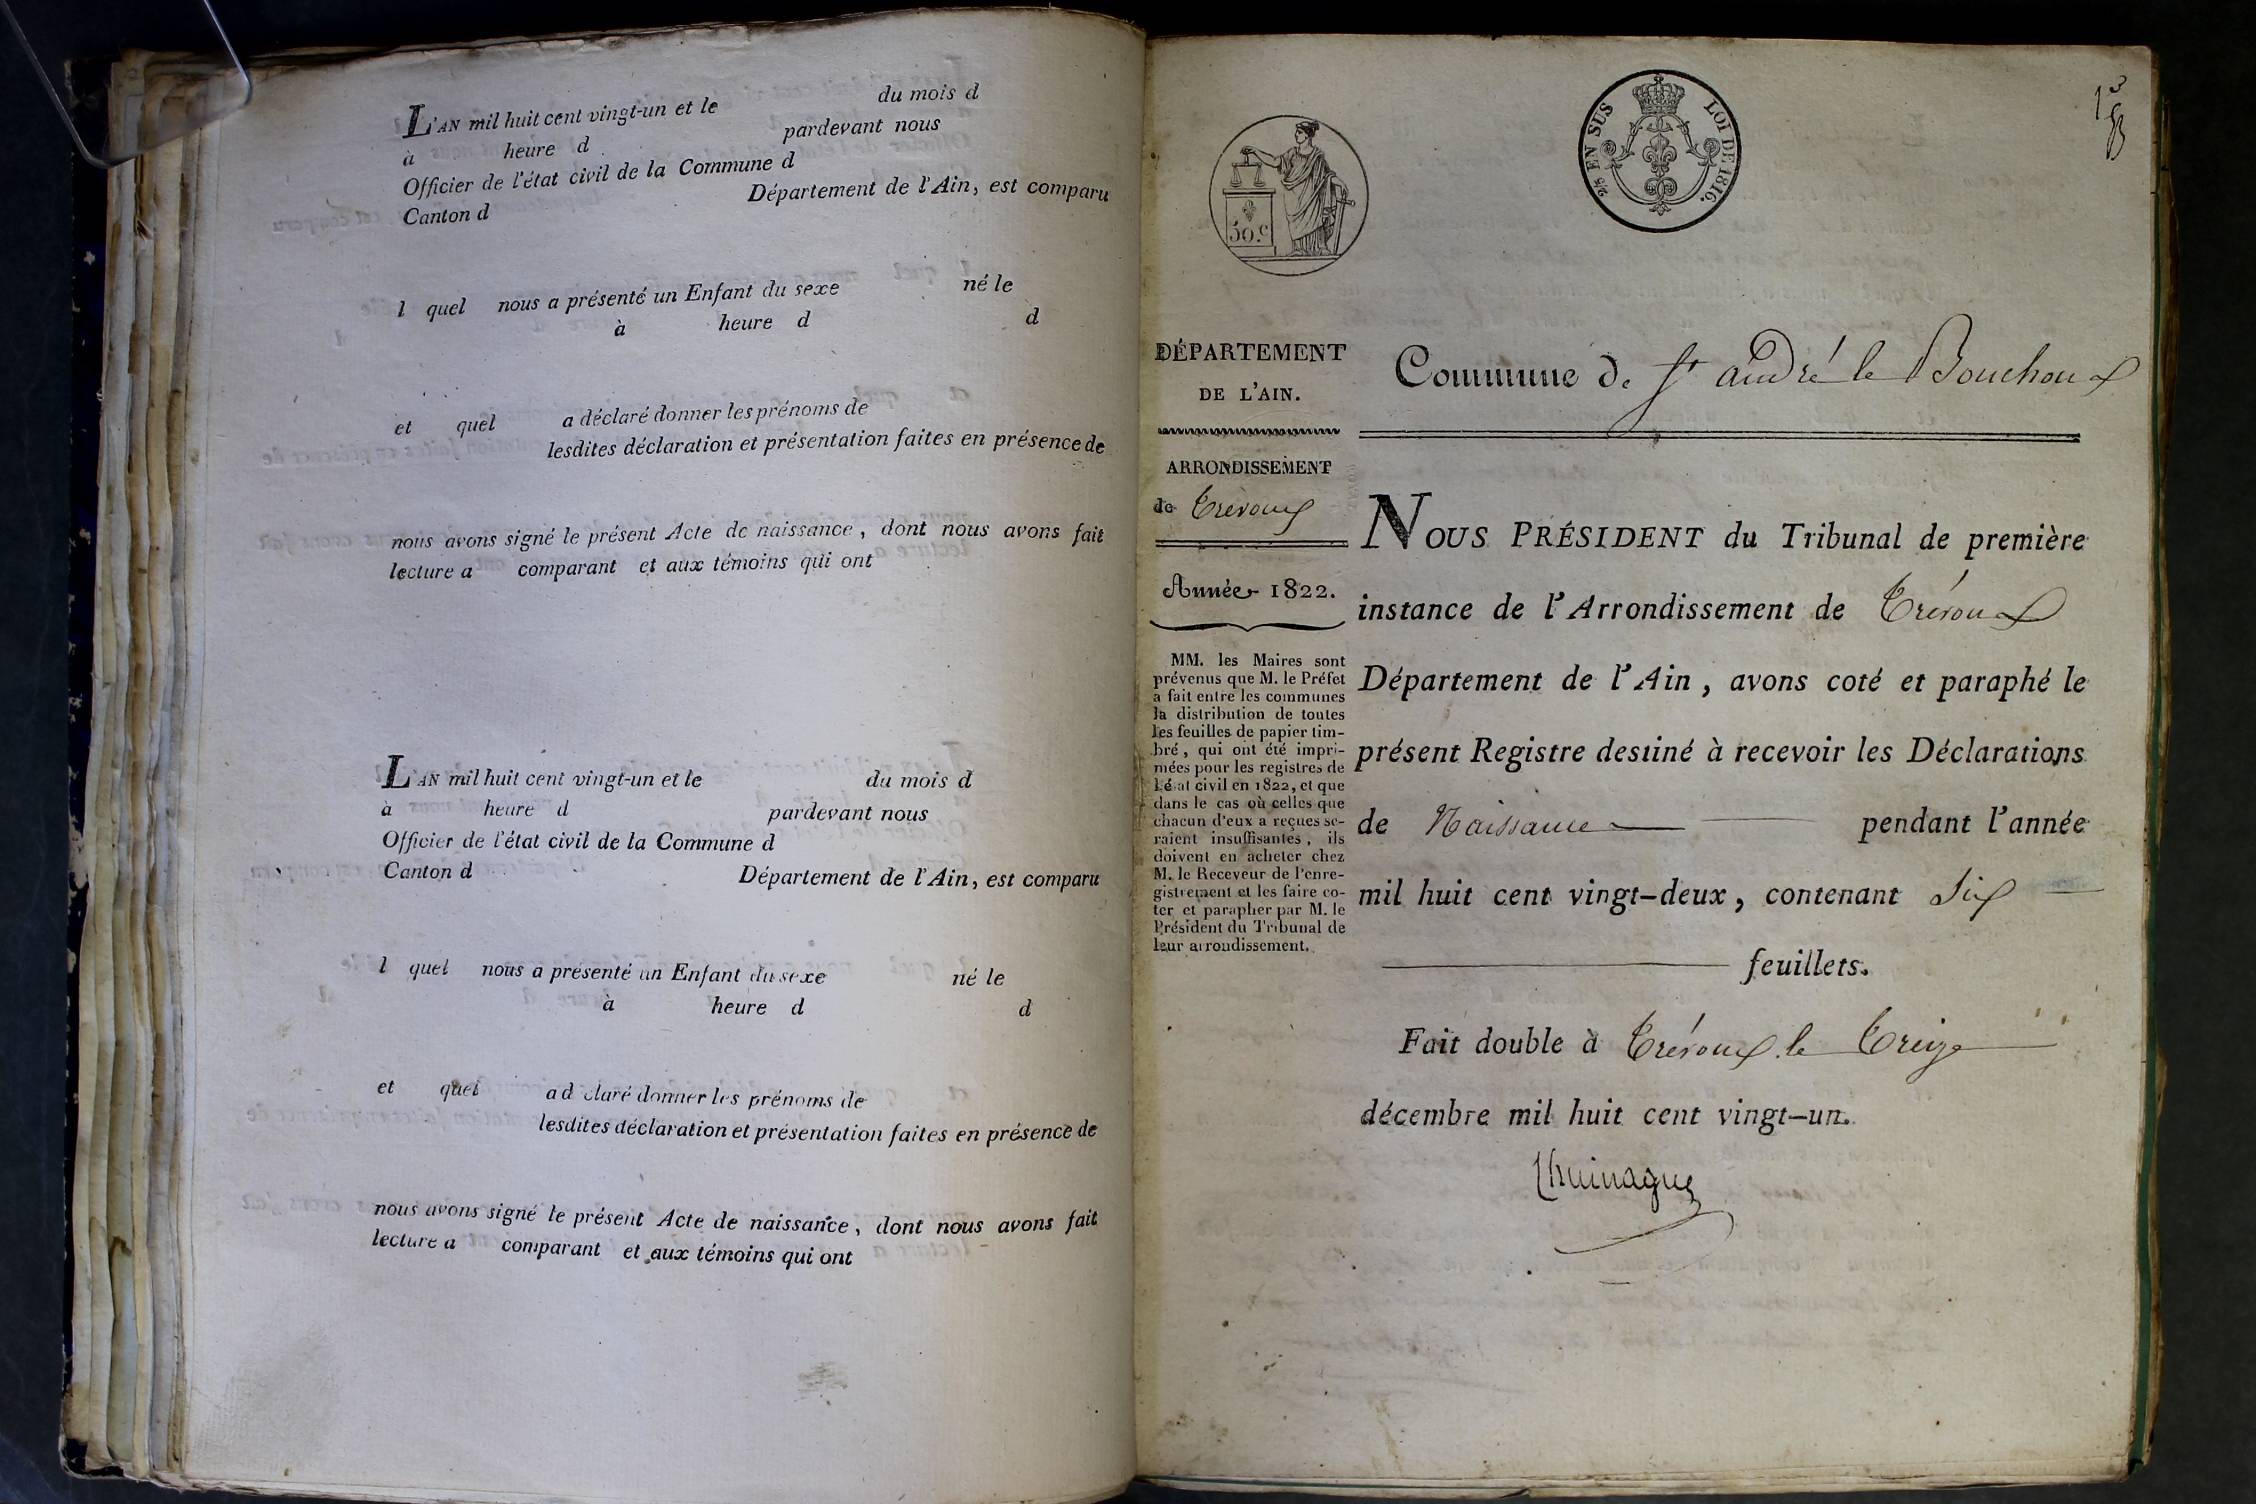 L'AN mil huit cent vingt-un et le du mois d
à heure d pardevant nous
Officier de l'état civil de la Commune d
Canton d Département de l'Ain, est comparu
l quel nous a présenté un Enfant du sexe né le
à heure d d
et quel a déclaré donner les prénoms de
lesdites déclaration et présentation faites en présence de
nous avons signé le présent Acte de naissance, dont nous avons fait
lecture a comparant et aux témoins qui ont
L'AN mil huit cent vingt-un et le du mois d
à heure d pardevant nous
Officier de l'état civil de la Commune d
Canton d Département de l'Ain, est comparu
l quel nous a présenté un Enfant du sexe né le
à heure d d
et quel a d claré donner les prénoms de
lesdites déclaration et présentation faites en présence de
nous avons signé le présent Acte de naissance, dont nous avons fait
lecture a comparant et aux témoins qui ont
50.c
2/5 EN SUS LOI DE 1816.
DÉPARTEMENT
DE L'AIN.
ARRONDISSEMENT
de Trévoux
Année 1822.
MM. les Maires sont
prévenus que M. le Préfet
a fait entre les communes
la distribution de toutes
les feuilles de papier tim-
bré, qui ont été impri-
mées pour les registres de
l'état civil en 1822, et que
dans le cas où celles que
chacun d'eux a reçues se-
raient insuffisantes, ils
doivent en acheter chez
M. le Receveur de l'enre-
gistrement et les faire co-
ter et parapher par M. le
Président du Tribunal de
leur arrondissement.
Commune de St andré le Bouchoux
NOUS PRÉSIDENT du Tribunal de première
instance de l'Arrondissement de Trévoux
Département de l'Ain, avons coté et paraphé le
présent Registre destiné à recevoir les Déclarations
de Naissance pendant l'année
mil huit cent vingt-deux, contenant Six
feuillets.
Fait double à Trévoux le Treize
décembre mil huit cent vingt-un.